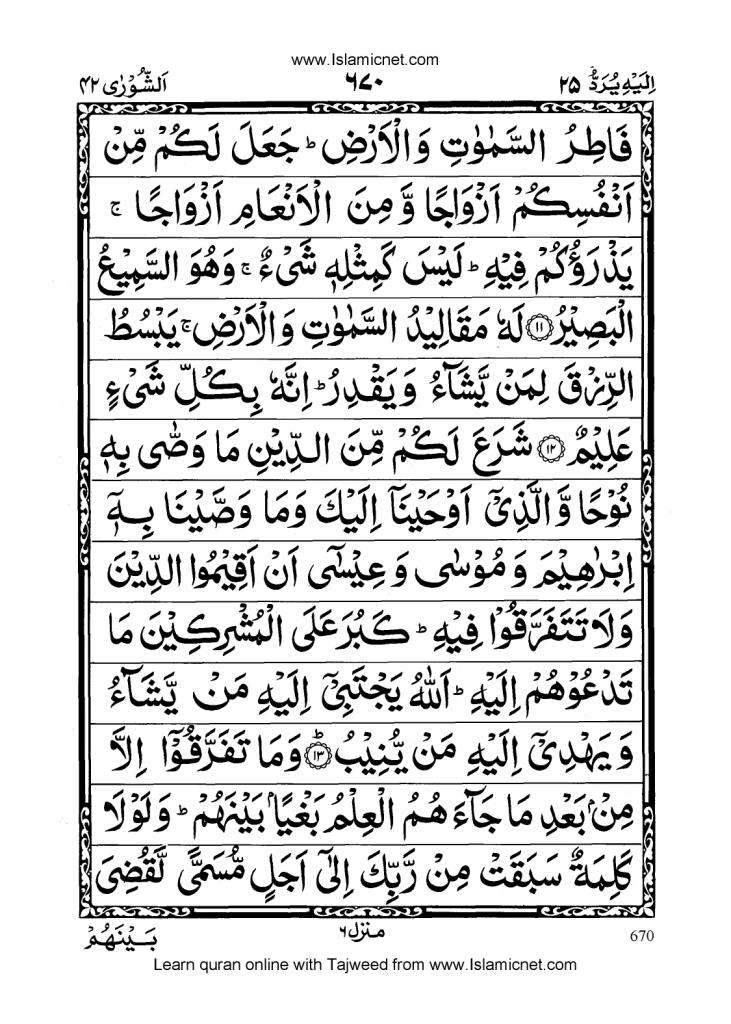 www.Islamicnet.com
اِلَيْهِ يُرَدُّ ٢٥
٦٧٠
اَلشُّوْرٰى ٤٢
فَاطِرُ السَّمٰوٰتِ وَالْاَرْضِ ؕ جَعَلَ لَكُمْ مِّنْ
اَنْفُسِكُمْ اَزْوَاجًا وَّمِنَ الْاَنْعَامِ اَزْوَاجًا ۚ
يَذْرَؤُكُمْ فِيْهِ ؕ لَيْسَ كَمِثْلِهٖ شَىْءٌ ۚ وَهُوَ السَّمِيْعُ
الْبَصِيْرُ ١١ لَهٗ مَقَالِيْدُ السَّمٰوٰتِ وَالْاَرْضِ ۚ يَبْسُطُ
الرِّزْقَ لِمَنْ يَّشَآءُ وَيَقْدِرُ ؕ اِنَّهٗ بِكُلِّ شَىْءٍ
عَلِيْمٌ ١٢ شَرَعَ لَكُمْ مِّنَ الدِّيْنِ مَا وَصّٰى بِهٖ
نُوْحًا وَّالَّذِىْۤ اَوْحَيْنَاۤ اِلَيْكَ وَمَا وَصَّيْنَا بِهٖۤ
اِبْرٰهِيْمَ وَمُوْسٰى وَعِيْسٰٓى اَنْ اَقِيْمُوا الدِّيْنَ
وَلَا تَتَفَرَّقُوْا فِيْهِ ؕ كَبُرَ عَلَى الْمُشْرِكِيْنَ مَا
تَدْعُوْهُمْ اِلَيْهِ ؕ اَللّٰهُ يَجْتَبِىْۤ اِلَيْهِ مَنْ يَّشَآءُ
وَيَهْدِىْۤ اِلَيْهِ مَنْ يُّنِيْبُ ؕ ١٣ وَمَا تَفَرَّقُوْۤا اِلَّا
مِنْۢ بَعْدِ مَا جَآءَهُمُ الْعِلْمُ بَغْيًاۢ بَيْنَهُمْ ؕ وَلَوْلَا
كَلِمَةٌ سَبَقَتْ مِنْ رَّبِّكَ اِلٰٓى اَجَلٍ مُّسَمًّى لَّقُضِىَ
بَيْنَهُمْ
منزل ٦
670
Learn quran online with Tajweed from www.Islamicnet.com